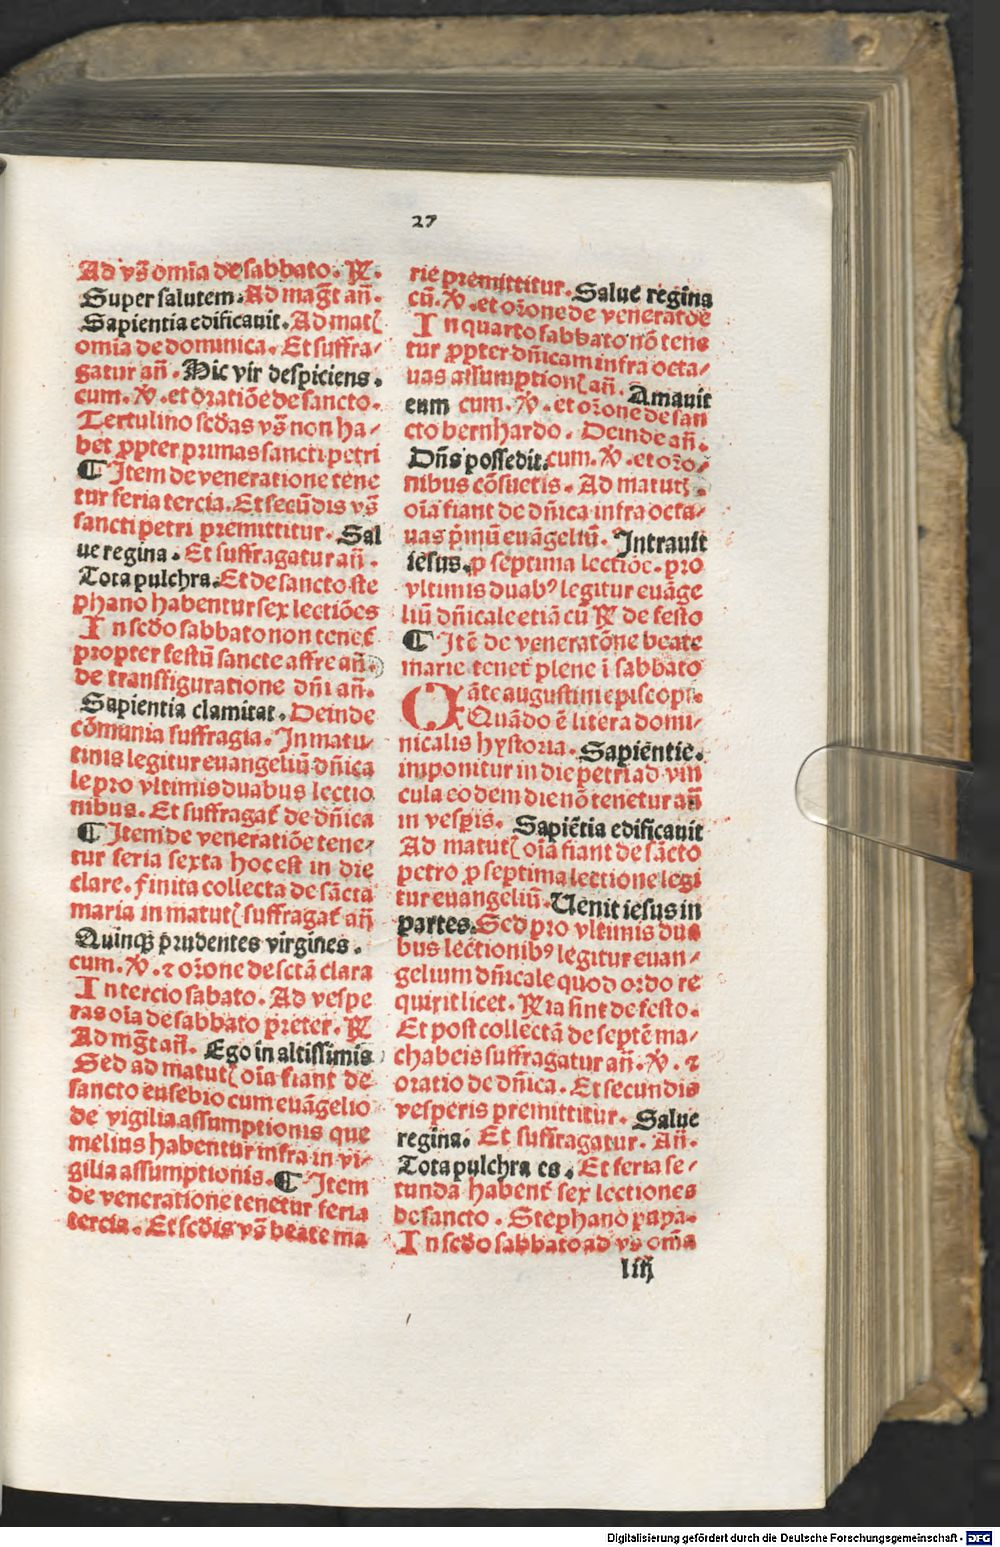 27
Ad vs̄ omīa de sabbato. ℟.
Super salutem. Ad mag̅t an̄.
Sapientia edificauit. Ad matꝭ
omīa de dominica. Et suffra⸗
gatur an̄. Hic vir despiciens.
cum. ℣. et oratiōe de sancto.
Tertulino scd̄as vs̄ non ha⸗
bet ꝓpter primas sancti petri
¶ Item de veneratione tene
tur feria tercia. Et secūdis vs̄
sancti petri premittitur. Sal
ue regina. Et suffragatur an̄.
Tota pulchra. Et de sancto ste
phano habentur sex lectiōes
In scd̄o sabbato non tenet̄
propter festū sancte affre an̄.
de transfiguratione dn̄i an̄.
Sapientia clamitat. Deinde
cōmunia suffragia. In matu⸗
tinis legitur euangeliū dn̄ica
le pro vltimis duabus lectio
nibus. Et suffragat̄ de dn̄ica
¶ Item de veneratiōe tene⸗
tur feria sexta hoc est in die
clare. finita collecta de sācta
maria in matutꝭ suffragat̄ an̄
Quinqꝫ prudentes virgines.
cum. ℣. ⁊ or̄one de sctā clara
In tercio sabato. Ad vespe
ras oīa de sabbato preter. ℟
Ad mg̅t an̄. Ego in altissimis
Sed ad matutꝭ oīa fiant de
sancto eusebio cum euāgelio
de vigilia assumptionis que
melius habentur infra in vi⸗
gilia assumptionis. ¶ Item
de veneratione tenetur feria
tercia. Et scd̄is vs̄ beate ma
rie premittitur. Salue regina
cū. ℣. et or̄one de venerat̄ōe
In quarto sabbato nō tene
tur ꝓpter dn̄icam infra octa⸗
uas assumptionꝭ an̄. Amauit
eum cum. ℣. et or̄one de san
cto bernhardo. Deinde an̄.
Dn̄s possedit. cum. ℣. et or̄o⸗
nibus cōsuetis. Ad matutꝭ.
oīa fiant de dn̄ica infra octa⸗
uas p̄mū euāgeliū. Intrauit
iesus. ꝓ septima lectiōe. pro
vltimis duabꝰ legitur euāge
liū dn̄icale etiā cū ℟ de festo
¶ Itē de venerat̄one beate
marie tenet̄ plene ī sabbato
Qāte augustini episcopi.
Quādo ē litera domi⸗
nicalis hystoria. Sapiēntie.
imponitur in die petri ad vin
cula eodem die nō tenetur an̄
in vesp̄is. Sapiētia edificauit
Ad matutꝭ oīa fiant de sācto
petro ꝓ septima lectione legi
tur euangeliū. Uenit iesus in
partes. Sed pro vltimis dua
bus lectionibꝰ legitur euan⸗
gelium dn̄icale quod ordo re
quirit licet. ℟ia sint de festo.
Et post collectā de septē ma⸗
chabeis suffragatur an̄. ℣. ⁊
oratio de dn̄ica. Et secundis
vesperis premittitur. Salue
regina. Et suffragatur. An̄.
Tota pulchra es. Et feria se⸗
cunda habent̄ sex lectiones
de sancto. Stephano papa.
In scd̄o sabbato ad vs̄ om̄ia
Digitalisierung gefördert durch die Deutsche Forschungsgemeinschaft - DFG